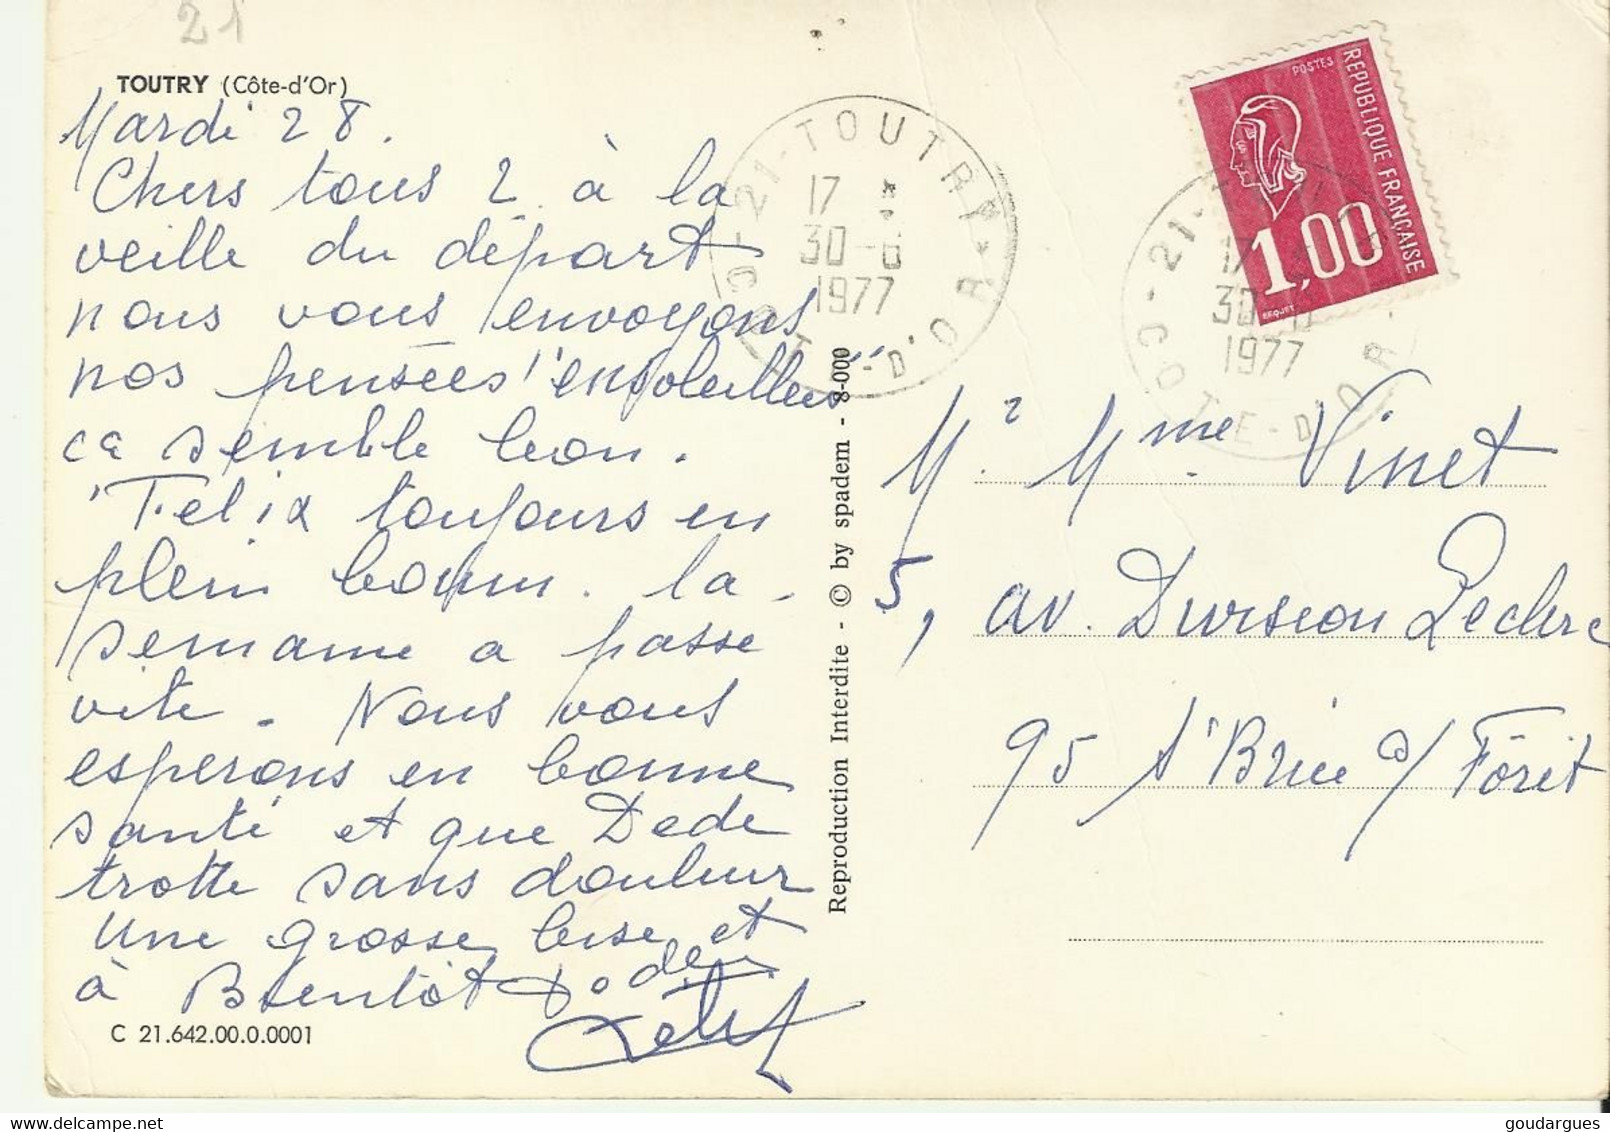 21
TOUTRY (Côte-d'Or)
Mardi 28.
Chers tous 2 à la
veille du départ
nous vous envoyons
nos pensées "ensoleillées"
ca semble bon.
Felix toujours en
plein boum. la
semaine a passe
vite. Nous vous
esperons en bonne
santé et que Dede
trotte sans douleur
Une grosse bise et
à Bientôt Dodee
Felix
C 21.642.00.0.0001
Reproduction Interdite - © by spadem - 8-000
21-TOUTRY
17
30-6
1977
COTE-D'OR
POSTES
REPUBLIQUE FRANÇAISE
1,00
BEQUET
21-
17
30-6
1977
COTE-D'OR
Mr Mme Vinet
5, av. Division Leclerc
95 St Brice s/ Fôrêt
goudargues